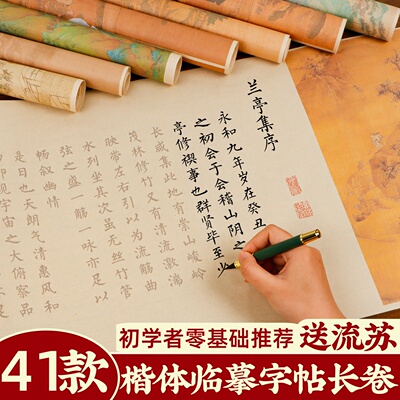 兰亭集序
永和九年岁在癸丑
之初会于会稽山阴之
亭修禊事也群贤毕至少
长咸集此地有崇山峻岭
茂林修竹又有清流激湍
映带左右引以为流觞曲
水列坐其次虽无丝竹管
弦之盛一觞一咏亦足以
畅叙幽情
是日也天朗气清惠风和
观宇宙之大俯察品
初学者零基础推荐
送流苏
41款
楷体临摹字帖长卷